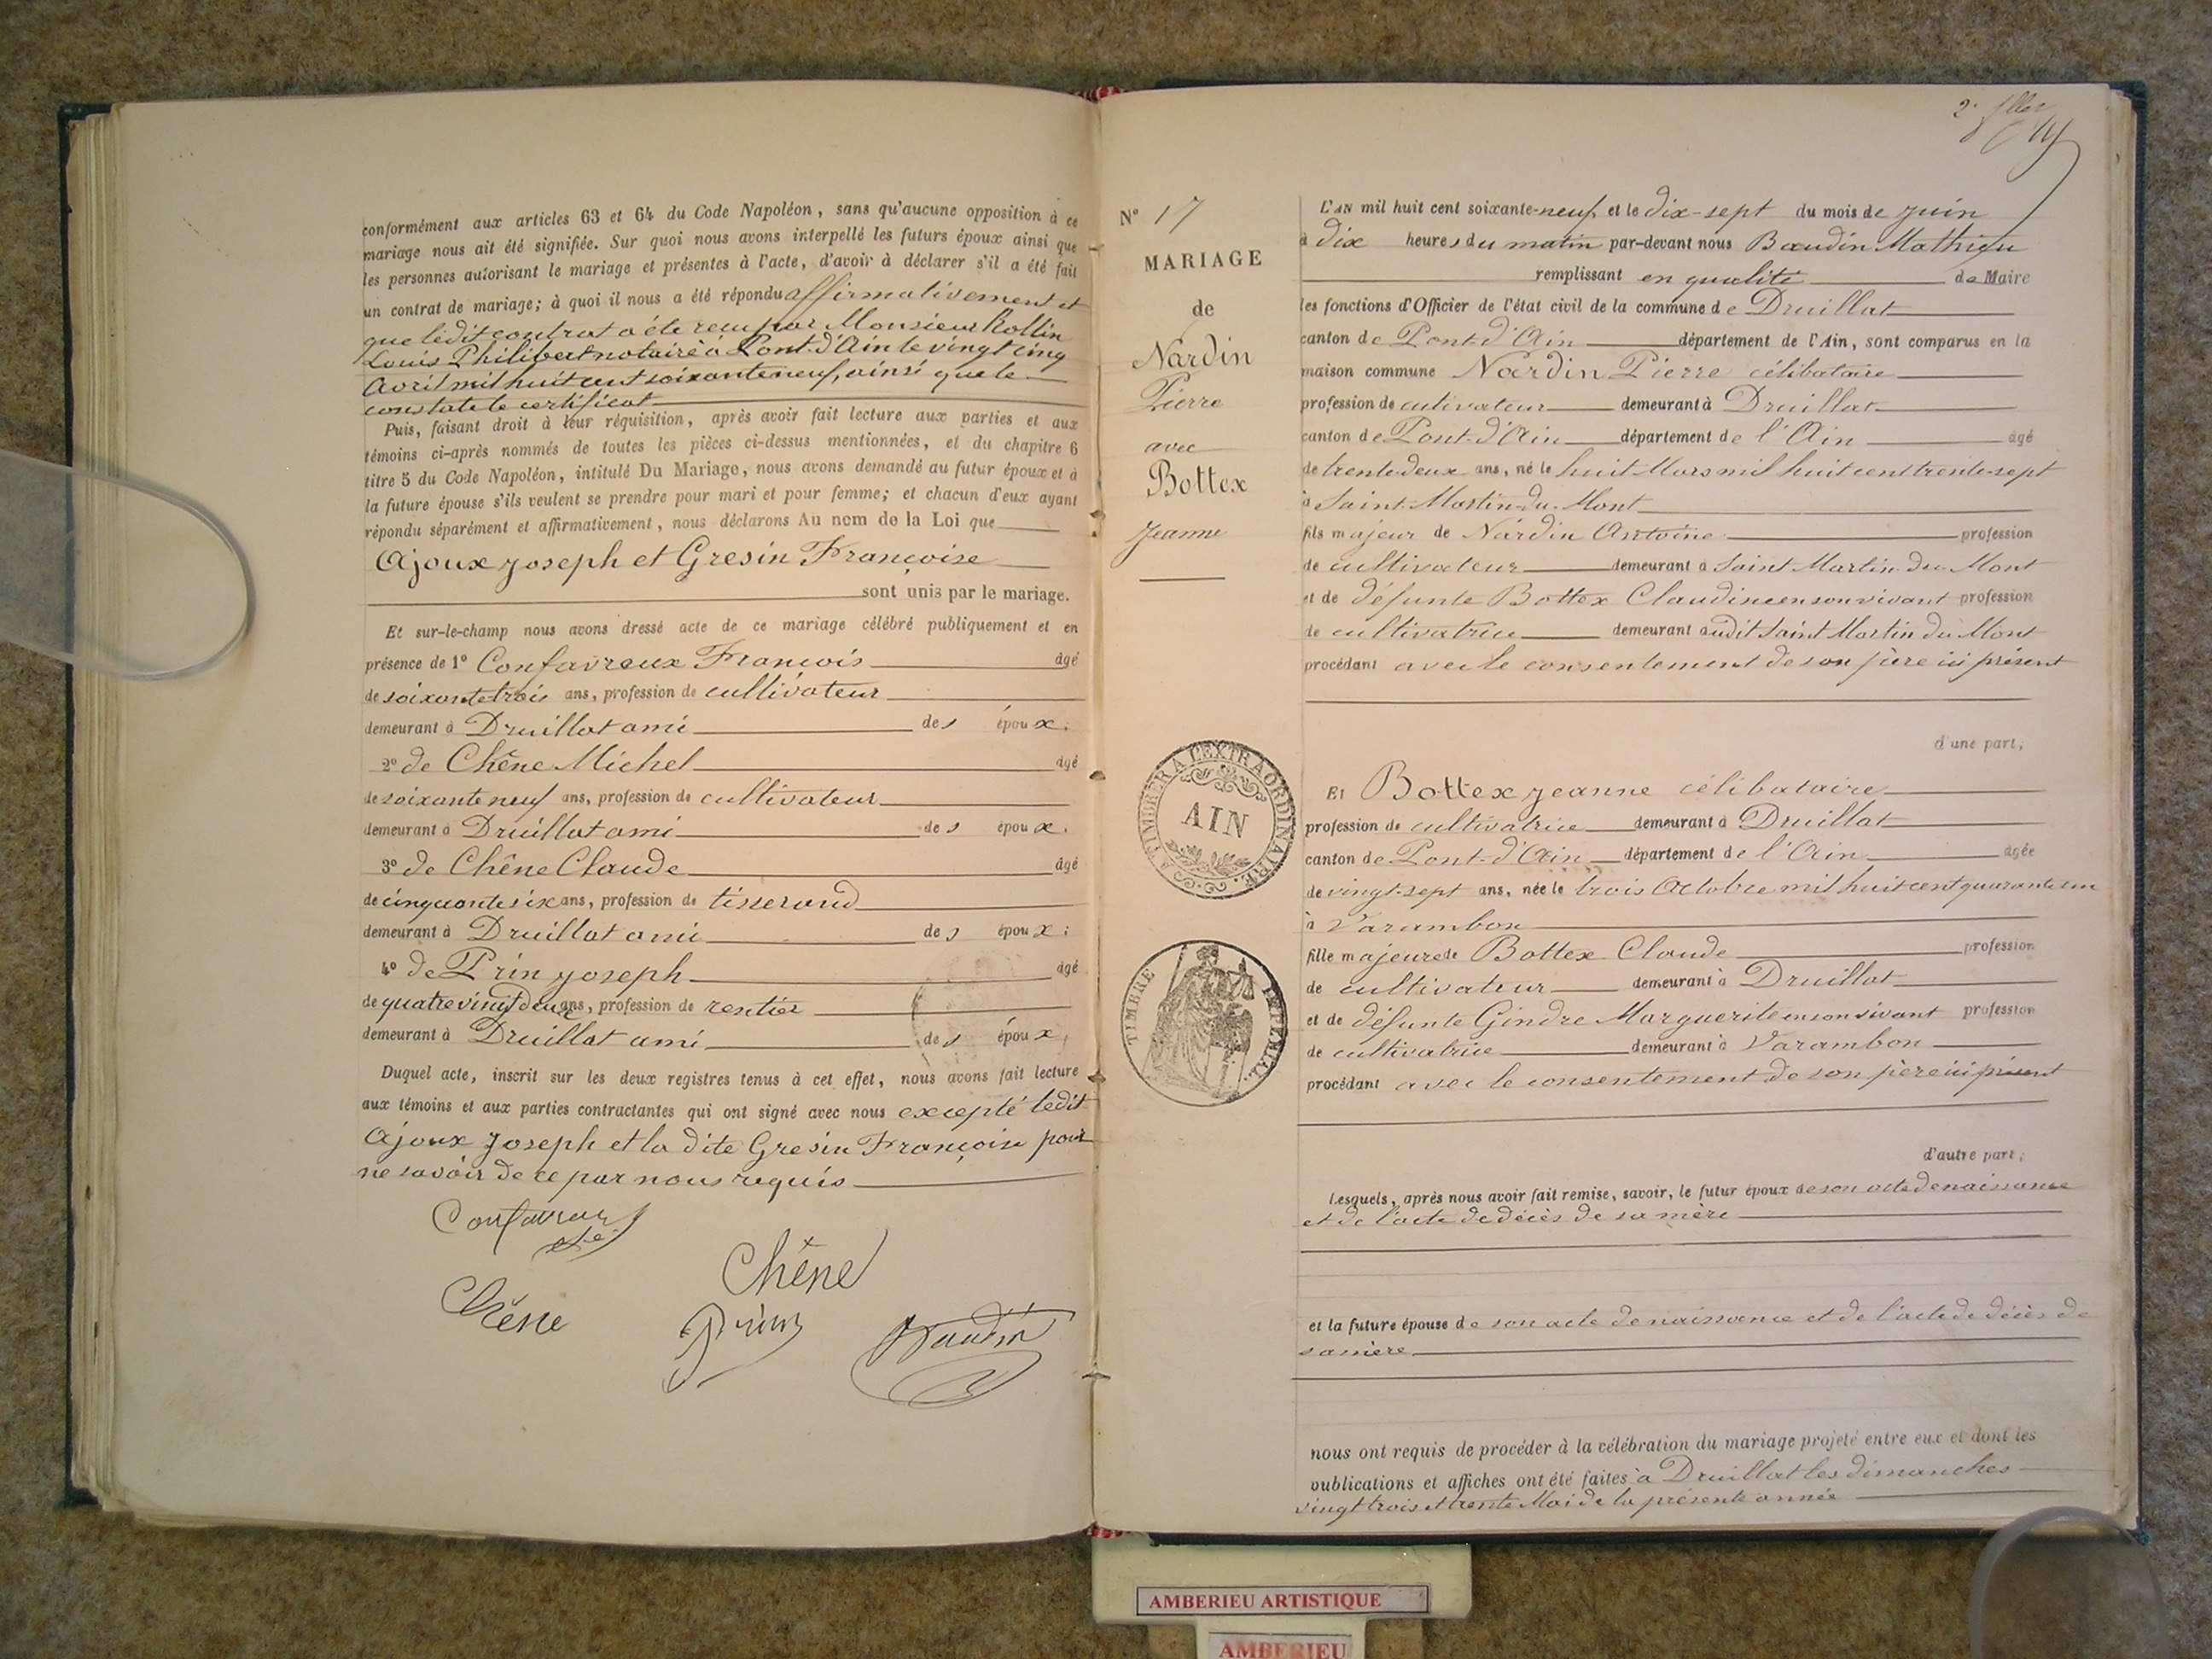 conformément aux articles 63 et 64 du Code Napoléon, sans qu'aucune opposition à ce
mariage nous ait été signifiée. Sur quoi nous avons interpellé les futurs époux ainsi que
les personnes autorisant le mariage et présentes à l'acte, d'avoir à déclarer s'il a été fait
un contrat de mariage; à quoi il nous a été répondu affirmativement et
que ledit contrat a été reçu par Monsieur Rollin
Louis Philibert notaire à Pont-d'Ain le vingt cinq
avril mil huit cent soixante neuf, ainsi que le
constate le certificat
Puis, faisant droit à leur réquisition, après avoir fait lecture aux parties et aux
témoins ci-après nommés de toutes les pièces ci-dessus mentionnées, et du chapitre 6
titre 5 du Code Napoléon, intitulé Du Mariage, nous avons demandé au futur époux et à
la future épouse s'ils veulent se prendre pour mari et pour femme; et chacun d'eux ayant
répondu séparément et affirmativement, nous déclarons Au nom de la Loi que
Ajoux Joseph et Gresin Françoise
sont unis par le mariage.
Et sur-le-champ nous avons dressé acte de ce mariage célébré publiquement et en
présence de 1° Confavreux François âgé
de soixante trois ans, profession de cultivateur
demeurant à Druillat ami des époux.
2° de Chêne Michel âgé
de soixante neuf ans, profession de cultivateur
demeurant à Druillat ami des époux.
3° de Chêne Claude âgé
de cinquante six ans, profession de tisserand
demeurant à Druillat ami des époux;
4° de Prin Joseph âgé
de quatre vingt deux ans, profession de rentier
demeurant à Druillat ami des époux,
Duquel acte, inscrit sur les deux registres tenus à cet effet, nous avons fait lecture
aux témoins et aux parties contractantes qui ont signé avec nous excepté ledit
Ajoux Joseph et la dite Gresin Françoise pour
ne savoir de ce par nous requis
Confavreux
Chêne
Chêne
Prin
Baudin
N° 17
MARIAGE
de
Nardin
Pierre
avec
Bottex
Jeanne
A TIMBRER A L'EXTRAORDINAIRE
AIN
TIMBRE IMPERIAL
L'AN mil huit cent soixante-neuf et le dix-sept du mois de juin
à dix heures du matin par-devant nous Baudin Mathieu
remplissant en qualité de Maire
les fonctions d'Officier de l'état civil de la commune de Druillat
canton de Pont-d'Ain département de l'Ain, sont comparus en la
maison commune Nardin Pierre célibataire
profession de cultivateur demeurant à Druillat
canton de Pont-d'Ain département de l'Ain âgé
de trente-deux ans, né le huit Mars mil huit cent trente-sept
à Saint-Martin-du-Mont
fils majeur de Nardin Antoine profession
de cultivateur demeurant à Saint-Martin-du-Mont
et de défunte Bottex Claudine en son vivant profession
de cultivatrice demeurant audit Saint Martin du Mont
procédant avec le consentement de son père ici présent
d'une part,
Et Bottex Jeanne célibataire
profession de cultivatrice demeurant à Druillat
canton de Pont-d'Ain département de l'Ain âgée
de vingt-sept ans, née le trois Octobre mil huit cent quarante un
à Varambon
fille majeure de Bottex Claude profession
de cultivateur demeurant à Druillat
et de défunte Gindre Marguerite en son vivant profession
de cultivatrice demeurant à Varambon
procédant avec le consentement de son père ici présent
d'autre part;
Lesquels, après nous avoir fait remise, savoir, le futur époux de son acte de naissance
et de l'acte de décès de sa mère
et la future épouse de son acte de naissance et de l'acte de décès de
sa mère
nous ont requis de procéder à la célébration du mariage projeté entre eux et dont les
publications et affiches ont été faites à Druillat les dimanches
vingt trois et trente Mai de la présente année
AMBERIEU ARTISTIQUE
AMBERIEU